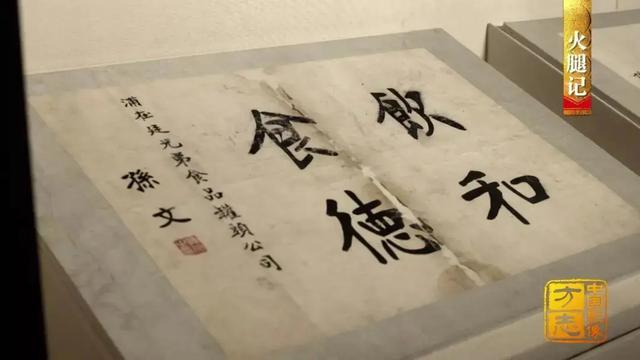 火腿记
飲和
食德
浦在廷兄弟食品罐頭公司
孫文
中国影像
方志